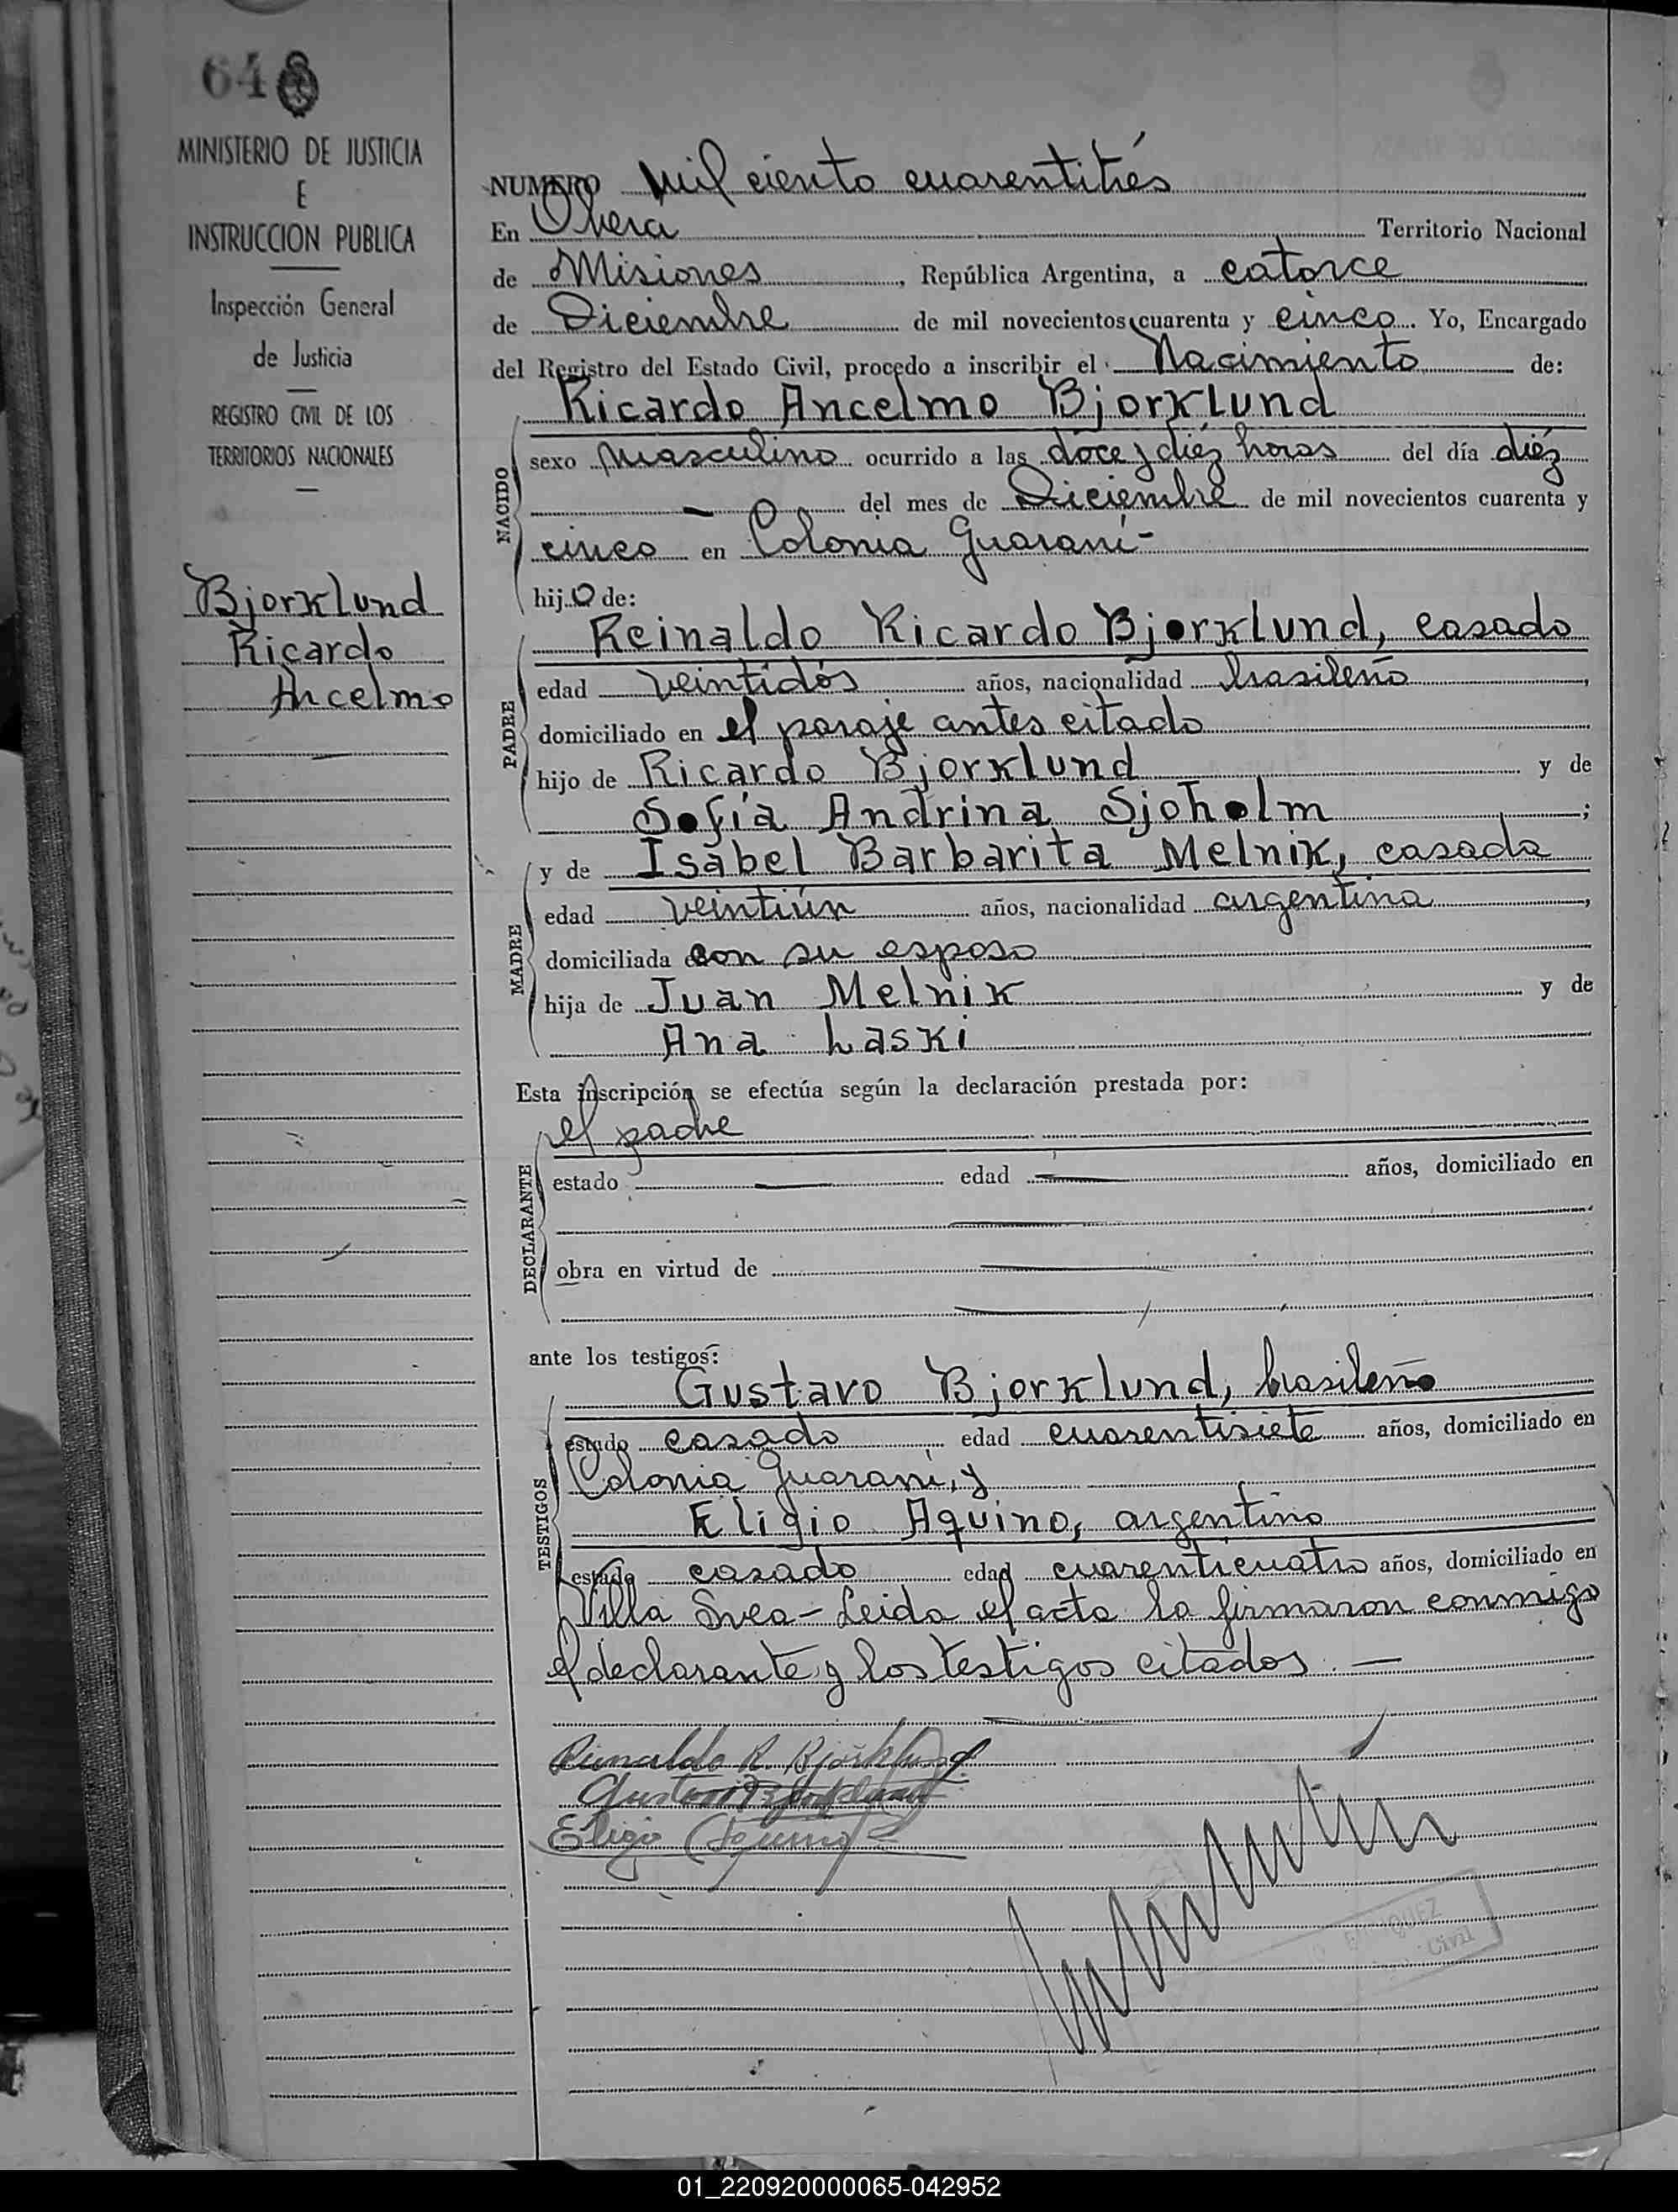 64
MINISTERIO DE JUSTICIA
E
INSTRUCCION PUBLICA
Inspección General
de Justicia
REGISTRO CIVIL DE LOS
TERRITORIOS NACIONALES
Bjorklund
Ricardo
Ancelmo
NUMERO Mil ciento cuarentitrés
En Obera Territorio Nacional
de Misiones, República Argentina, a catorce
de Diciembre de mil novecientos cuarenta y cinco. Yo, Encargado
del Registro del Estado Civil, procedo a inscribir el Nacimiento de:
NACIDO
Ricardo Ancelmo Bjorklund
sexo masculino ocurrido a las doce y diéz horas del día diéz
del mes de Diciembre de mil novecientos cuarenta y
cinco en Colonia Guaraní-
hijo de:
PADRE
Reinaldo Ricardo Bjorklund, casado
edad veintidós años, nacionalidad brasileño,
domiciliado en el paraje antes citado
hijo de Ricardo Bjorklund y de
Sofía Andrina Sjoholm;
MADRE
y de Isabel Barbarita Melnik, casada
edad veintiún años, nacionalidad argentina,
domiciliada con su esposo
hija de Juan Melnik y de
Ana Laski
Esta inscripción se efectúa según la declaración prestada por:
DECLARANTE
el padre
estado edad años, domiciliado en
obra en virtud de
ante los testigos:
TESTIGOS
Gustavo Bjorklund, brasileño
estado casado edad cuarentisiete años, domiciliado en
Colonia Guaraní, y
Eligio Aquino, argentino
estado casado edad cuarenticuatro años, domiciliado en
Villa Svea- Leida el acta la firmaron conmigo
el declarante y los testigos citados. —
Reinaldo R. Bjorklund
Gustavo Bjorklund
Eligio Aquino
Civil
01_220920000065-042952